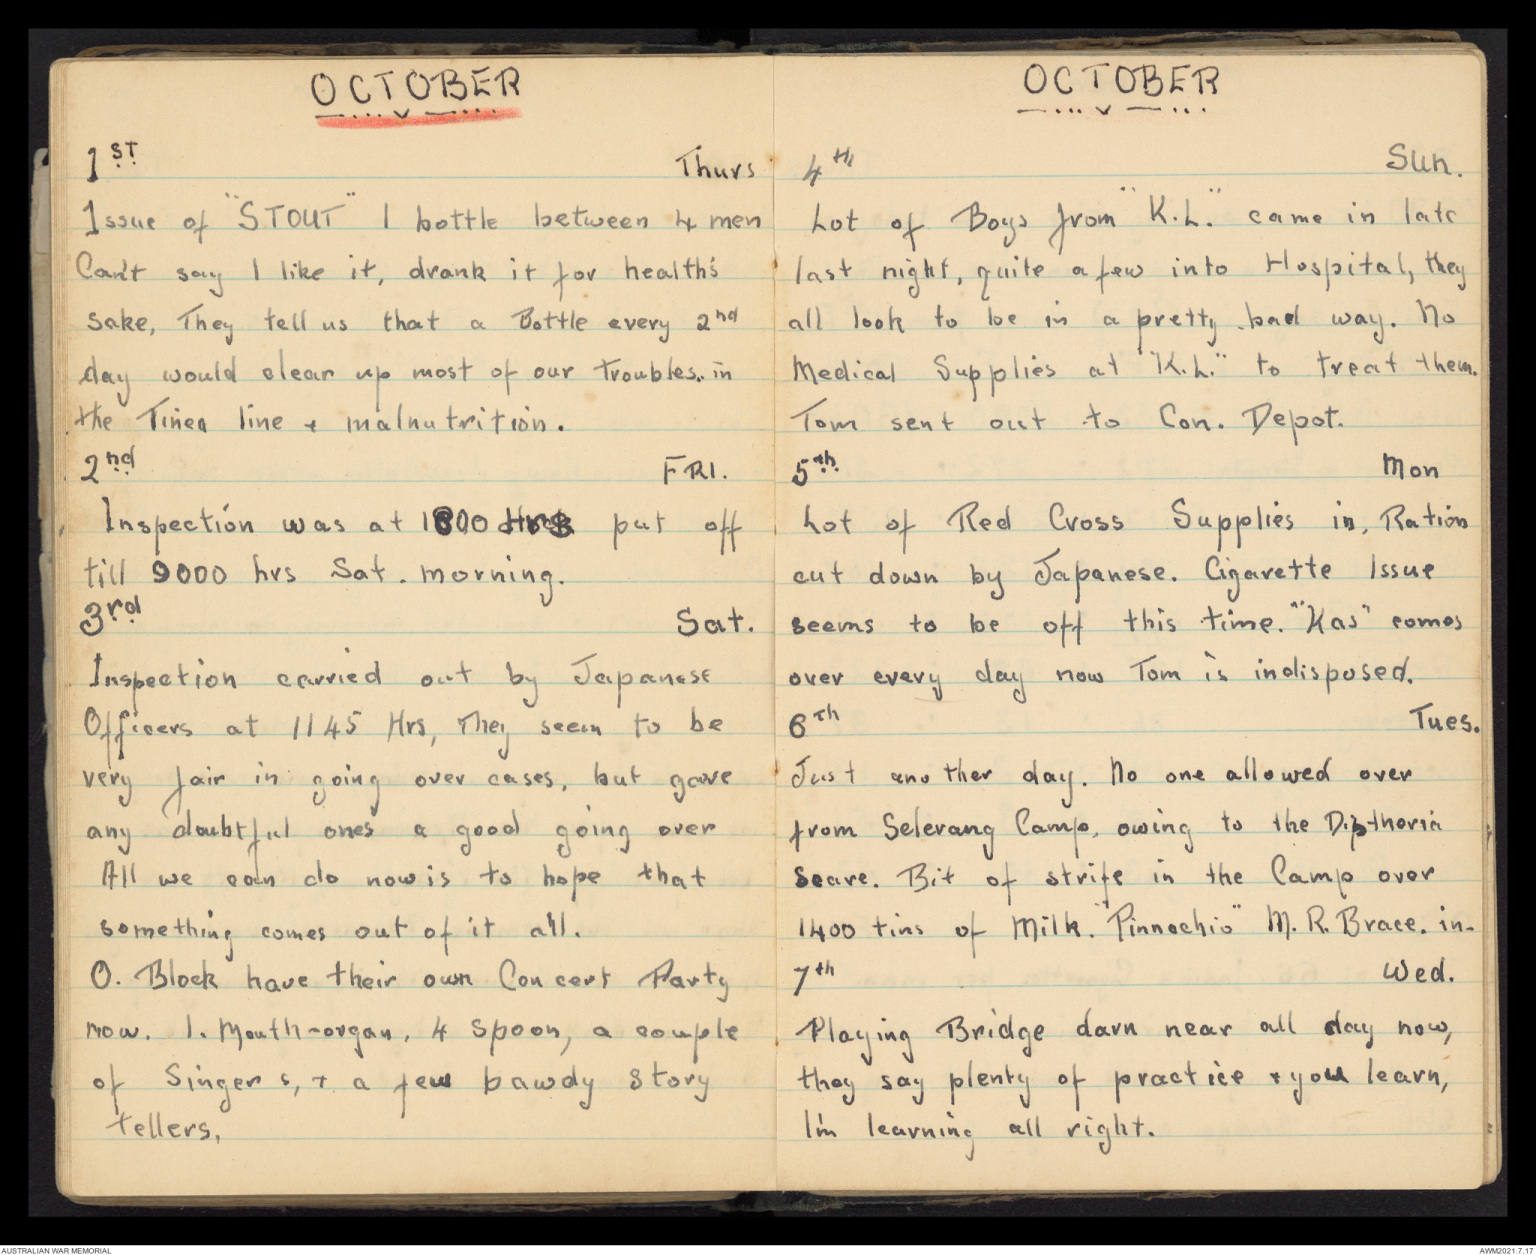 OCTOBER
1ST Thurs
Issue of "STOUT" 1 bottle between 4 men
Can't say I like it, drank it for health's
sake, They tell us that a Bottle every 2nd
day would clear up most of our troubles. in
the Tinea line + malnutrition.
2nd FRI.
Inspection was at 1800 Hrs put off
till 9000 hrs Sat. morning.
3rd Sat.
Inspection carried out by Japanese
Officers at 1145 Hrs, They seem to be
very fair in going over cases, but gave
any doubtful ones a good going over
All we can do now is to hope that
something comes out of it all.
O. Block have their own Concert Party
now. 1. Mouth-organ, 4 Spoon, a couple
of Singers, + a few bawdy story
tellers,
OCTOBER
4th Sun.
Lot of Boys from "K.L." came in late
last night, quite a few into Hospital, they
all look to be in a pretty bad way. No
Medical Supplies at "K.L." to treat them.
Tom sent out to Con. Depot.
5th Mon
Lot of Red Cross Supplies in, Ration
cut down by Japanese. Cigarette Issue
seems to be off this time. "Kas" comes
over every day now Tom is indisposed.
6Th Tues.
Just another day. No one allowed over
from Selerang Camp, owing to the Diptheria
Scare. Bit of strife in the Camp over
1400 tins of Milk. "Pinnochio" M.R. Brace. in-
7th Wed.
Playing Bridge darn near all day now,
they say plenty of practice + you learn,
I'm learning all right.
AUSTRALIAN WAR MEMORIAL
AWM2021.7.17